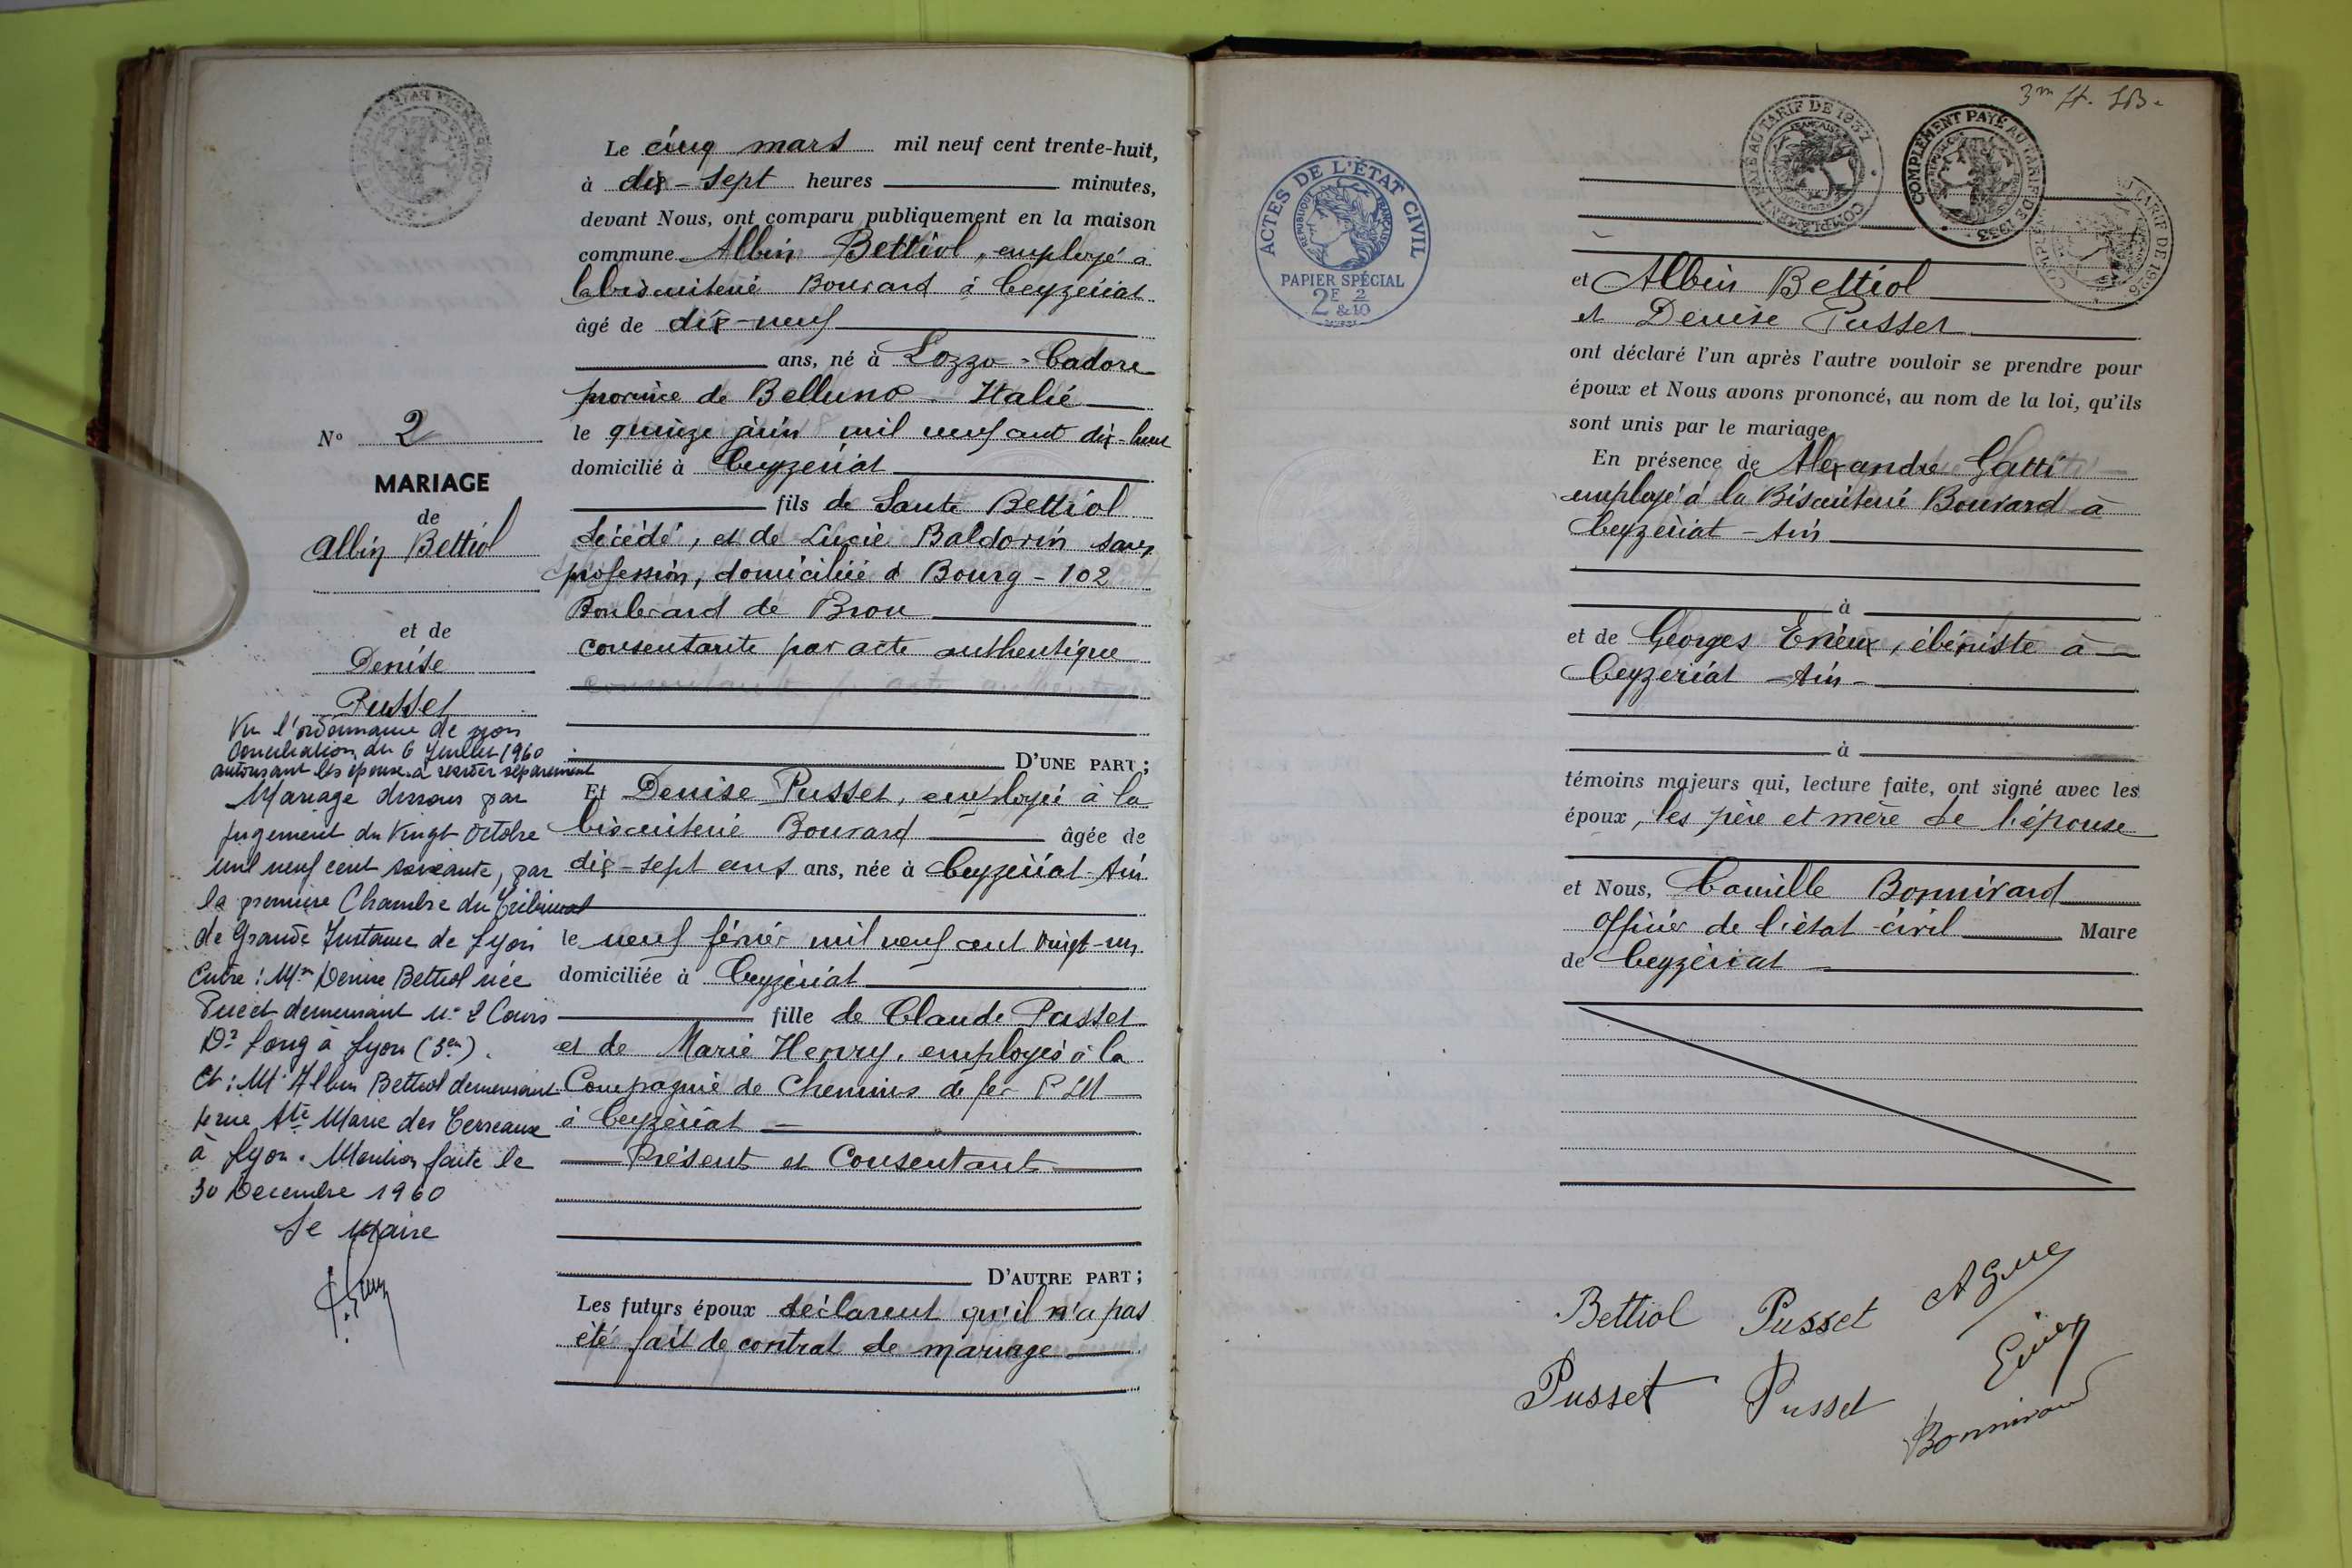 N° 2
MARIAGE
de
Albin Bettiol
et de
Denise
Pusset
Vu l'ordonnance de non
Conciliation du 6 Juillet 1960
autorisant les époux à résider séparement
Mariage dissous par
jugement du Vingt Octobre
mil neuf cent soixante, par
la première Chambre du Tribunal
de Grande Instance de Lyon
Entre : Mme Denise Bettiol née
Pusset demeurant n° 2 Cours
Dr Long à Lyon (3em).
Et : Mr Albin Bettiol demeurant
rue Ste Marie des Terreaux
à Lyon. Mention faite le
30 Decembre 1960
Le Maire
Le cinq mars mil neuf cent trente-huit,
à dix-sept heures minutes,
devant Nous, ont comparu publiquement en la maison
commune Albin Bettiol, employé à
la biscuiterie Bouvard à Ceyzériat
âgé de dix-neuf
ans, né à Lozzo-Cadore
province de Belluno - Italie
le quinze juin mil neuf cent dix-huit
domicilié à Ceyzériat
fils de Sante Bettiol
décédé, et de Lucie Baldorin sans
profession, domiciliée à Bourg - 102
Boulevard de Brou
consentante par acte authentique
D'UNE PART ;
Et Denise Pusset, employée à la
biscuiterie Bouvard âgée de
dix-sept ans ans, née à Ceyzériat-Ain
le neuf février mil neuf cent vingt-un,
domiciliée à Ceyzériat
fille de Claude Pusset
et de Marie Henry, employés à la
Compagnie de Chemins de fer P L M
à Ceyzériat
Présents et Consentants
D'AUTRE PART ;
Les futurs époux déclarent qu'il n'a pas
été fait de contrat de mariage
3m
ACTES DE L'ÉTAT CIVIL
RÉPUBLIQUE FRANÇAISE
PAPIER SPÉCIAL
2F 2/10
COMPLÉMENT PAYÉ AU TARIF DE 1937
COMPLÉMENT PAYÉ AU TARIF DE 1933
TARIF DE 1926
et Albin Bettiol
et Denise Pusset
ont déclaré l'un après l'autre vouloir se prendre pour
époux et Nous avons prononcé, au nom de la loi, qu'ils
sont unis par le mariage,
En présence de Alexandre Gatti
employé à la Biscuiterie Bouvard à
Ceyzériat - Ain
à
et de Georges Enieux, ébéniste à
Ceyzériat - Ain -
à
témoins majeurs qui, lecture faite, ont signé avec les
époux, les père et mère de l'épouse
et Nous, Camille Bonnivard
Officier de l'état-civil Maire
de Ceyzériat
Bettiol Pusset
Pusset Pusset
Bonnivard